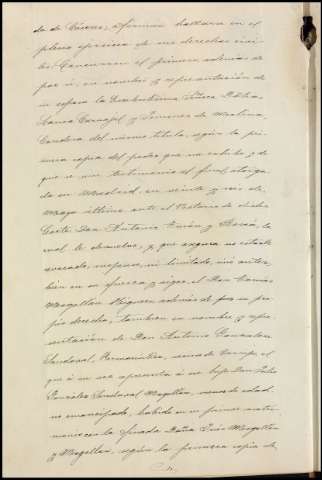 da de Cáceres; afirman hallarse en el
pleno ejercicio de sus derechos civi-
les. Concurren el primero además de
por sí, en nombre y representación de
su esposa la Excelentísima Señora Doña
Carvajal y Jimenez de Molina,
Condesa del mismo título, según la pri-
mera copia del poder que me exhibe y de
que se une testimonio al final otorga-
da en Madrid, en veinte y seis de
Mayo último ante el Notario de dicha
Corte Don Antonio Turón y Boscá, la
cual le devuelvo, y que asegura no estarle
revocado, suspenso, ni limitado, sino antes
bien en su fuerza y vigor, el Don
Magallan Higuero además de por su pro-
pio derecho, tambien en nombre y repre-
sentación de Don Antonio Gonzalez
Sandoval, vecino de el
que á su vez representa á su hijo Don
Gonzalez Sandoval Magallan, menor de edad
no emancipado, habido en su primer matri-
monio con la finada Doña Magallan
y Magallan, según la primera copia de